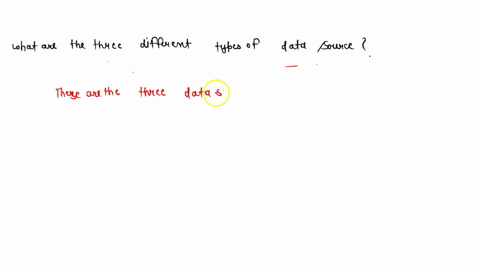 what are the three different types of data source?
These are the three data s